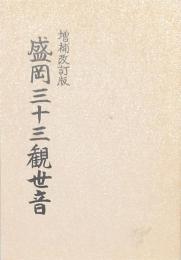 増補改訂版
盛岡三十三観世音